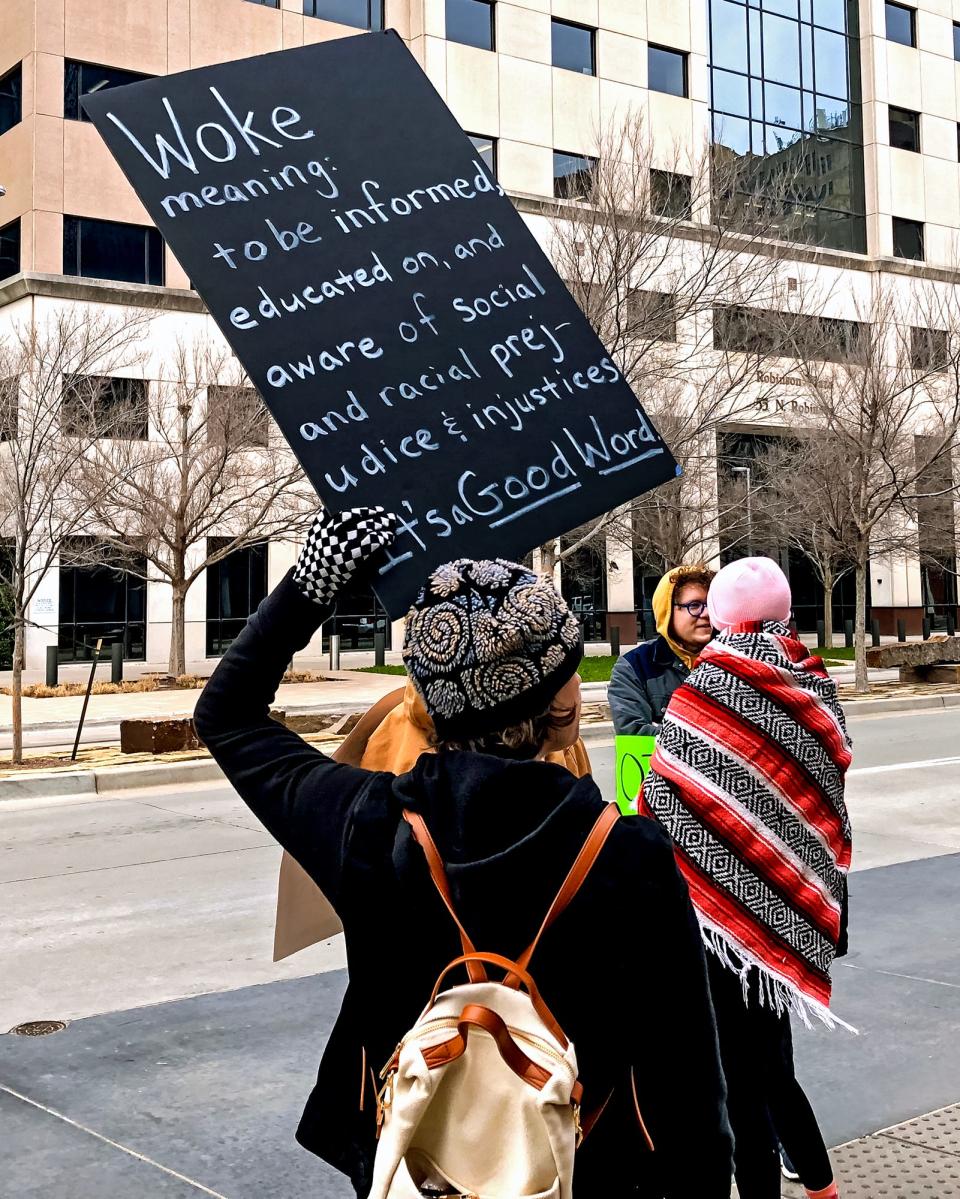 Woke
meaning:
to be informed,
educated on, and
aware of social
and racial prej-
udice & injustices
It's a Good Word.
Robinson
55 N. Robin
O